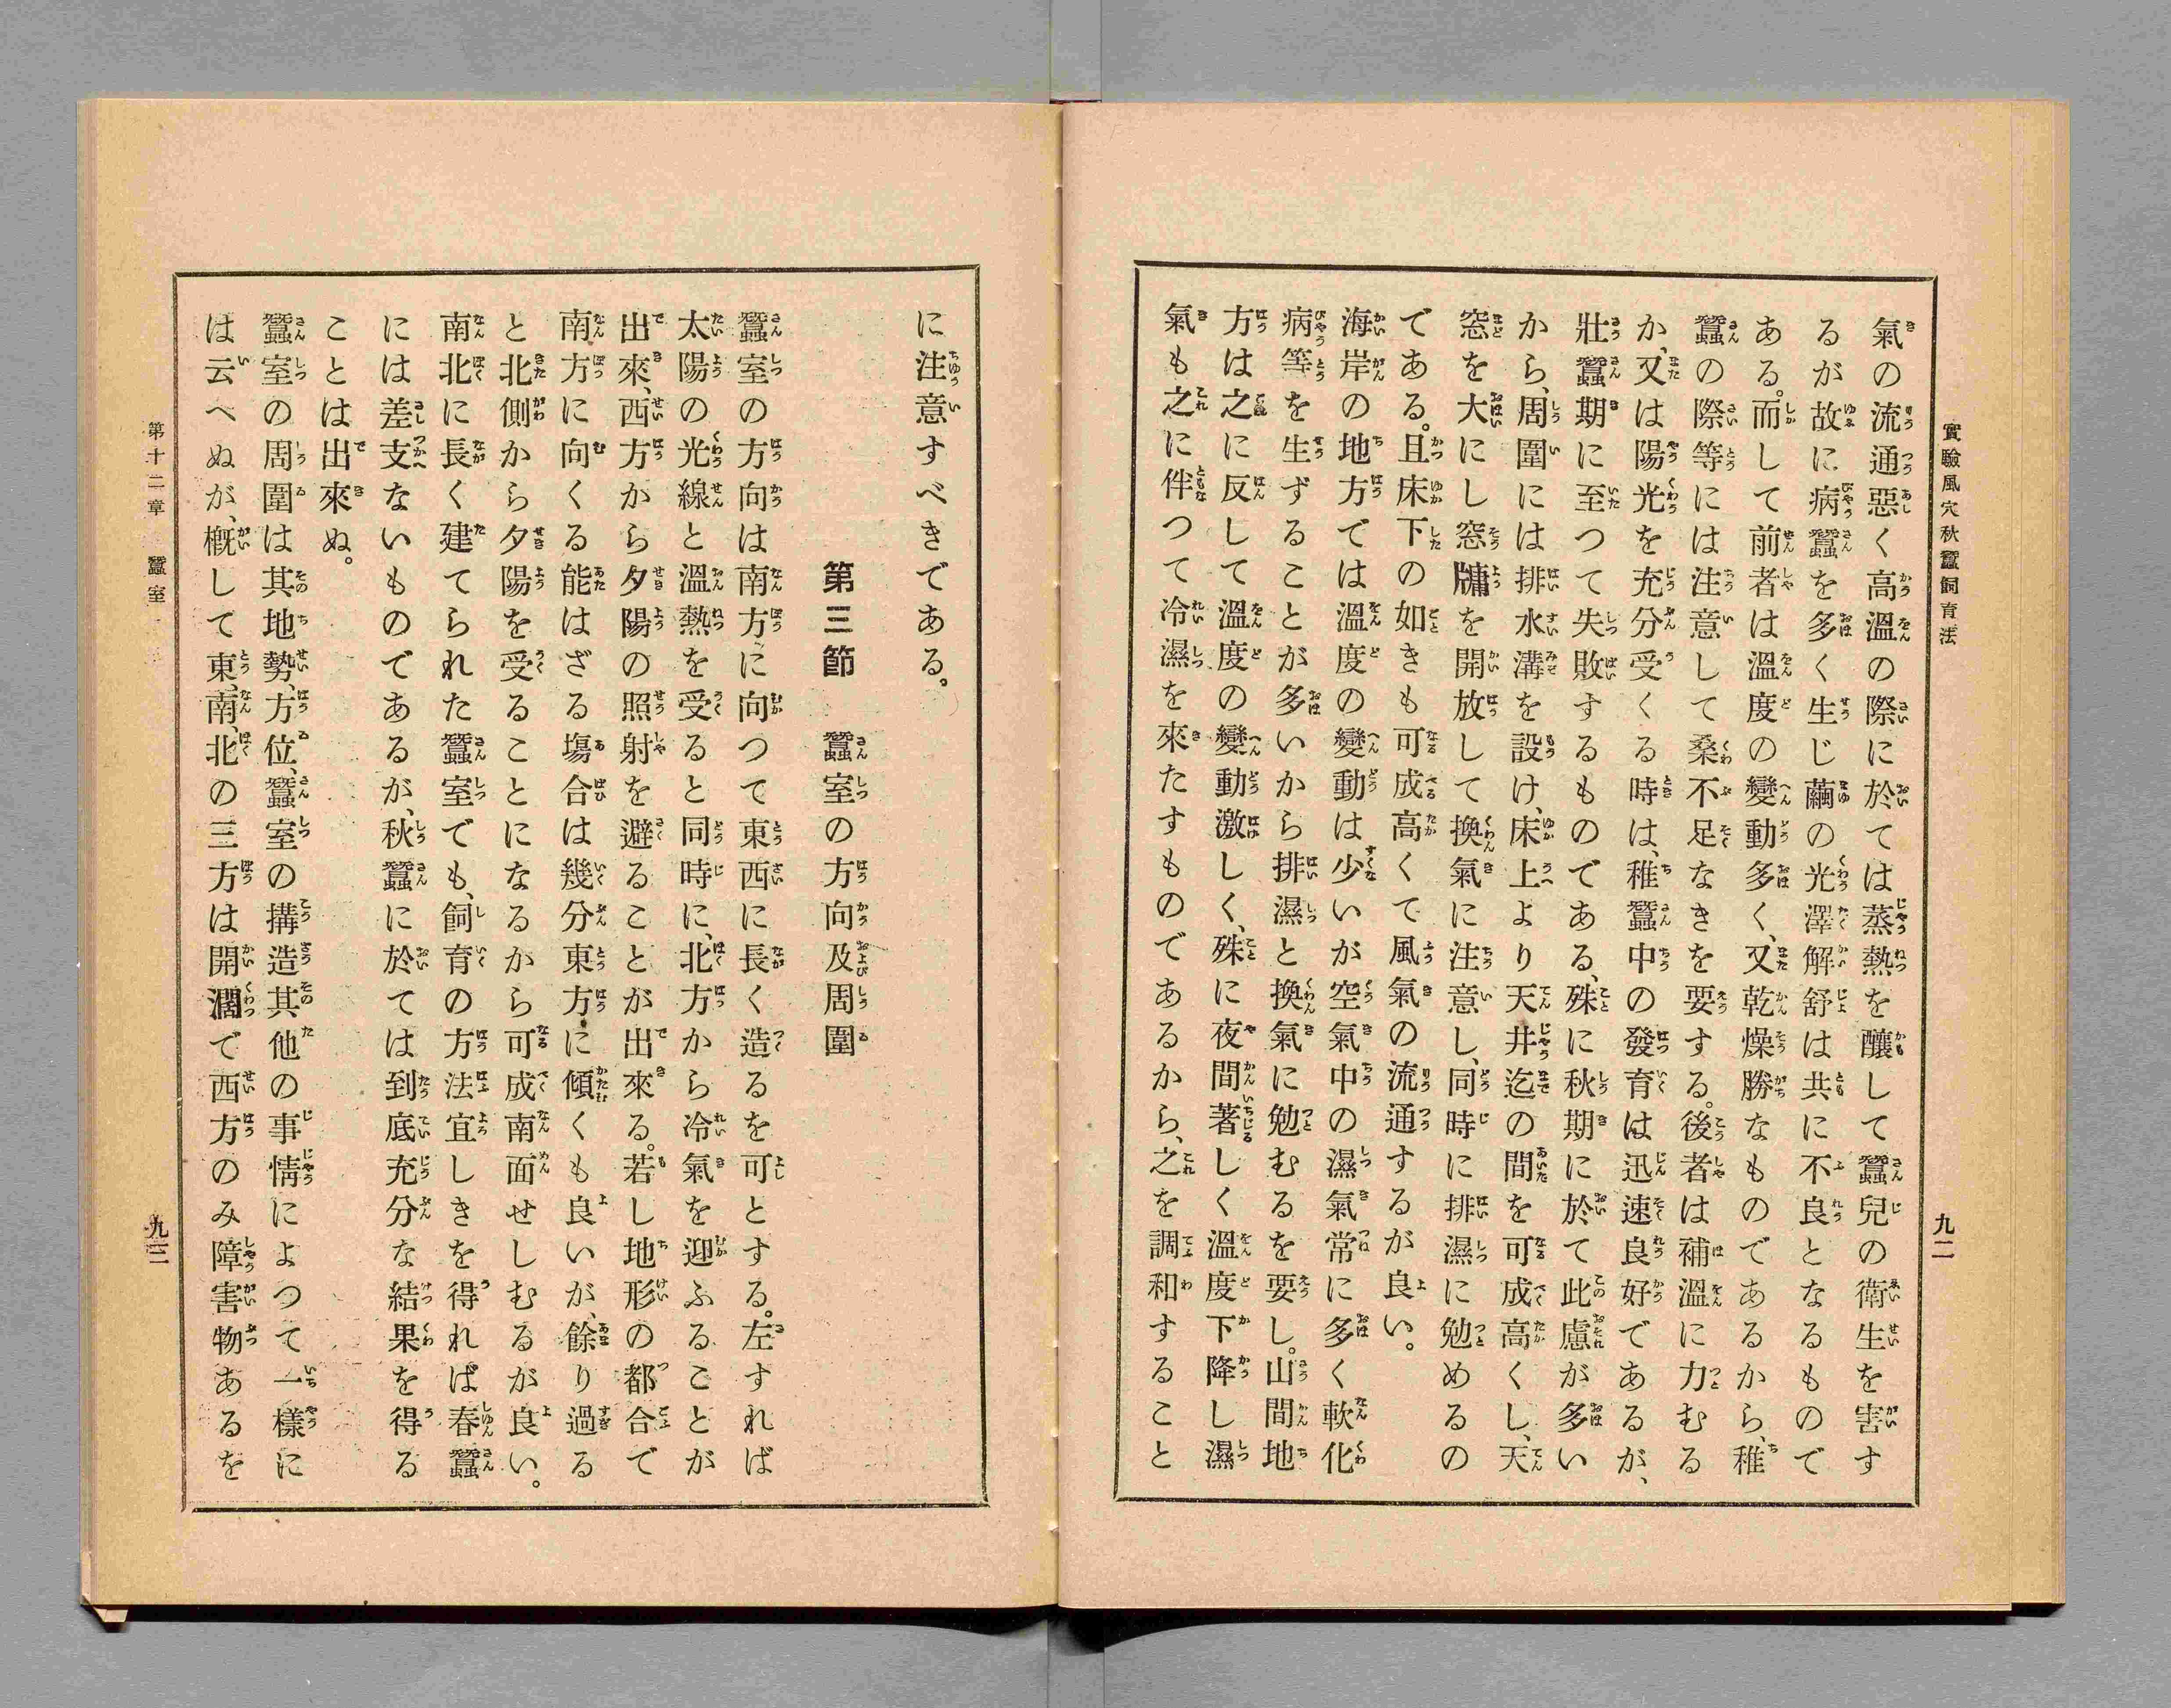 實驗風穴秋蠶飼育法
九二
氣の流通惡く高溫の際に於ては蒸熱を釀して蠶兒の衛生を害す
るが故に病蠶を多く生じ繭の光澤解舒は共に不良となるもので
ある。而して前者は溫度の變動多く、又乾燥勝なものであるから、稚
蠶の際等には注意して桑不足なきを要する。後者は補溫に力むる
か、又は陽光を充分受くる時は、稚蠶中の發育は迅速良好であるが、
壯蠶期に至つて失敗するものである、殊に秋期に於て此慮が多い
から、周圍には排水溝を設け、床上より天井迄の間を可成高くし、天
窓を大にし窓牗を開放して換氣に注意し、同時に排濕に勉めるの
である。且床下の如きも可成高くて風氣の流通するが良い。
海岸の地方では溫度の變動は少いが空氣中の濕氣常に多く軟化
病等を生ずることが多いから排濕と換氣に勉むるを要し。山間地
方は之に反して溫度の變動激しく、殊に夜間著しく溫度下降し濕
氣も之に伴つて冷濕を來たすものであるから、之を調和すること
に注意すべきである。
第三節　蠶室の方向及周圍
蠶室の方向は南方に向つて東西に長く造るを可とする。左すれば
太陽の光線と溫熱を受ると同時に、北方から冷氣を迎ふることが
出來、西方から夕陽の照射を避ることが出來る。若し地形の都合で
南方に向くる能はざる塲合は幾分東方に傾くも良いが、餘り過る
と北側から夕陽を受ることになるから可成南面せしむるが良い。
南北に長く建てられた蠶室でも、飼育の方法宜しきを得れば春蠶
には差支ないものであるが、秋蠶に於ては到底充分な結果を得る
ことは出來ぬ。
蠶室の周圍は其地勢、方位、蠶室の搆造其他の事情によつて一樣に
は云へぬが、概して東、南、北の三方は開濶で西方のみ障害物あるを
第十二章　蠶室
九三